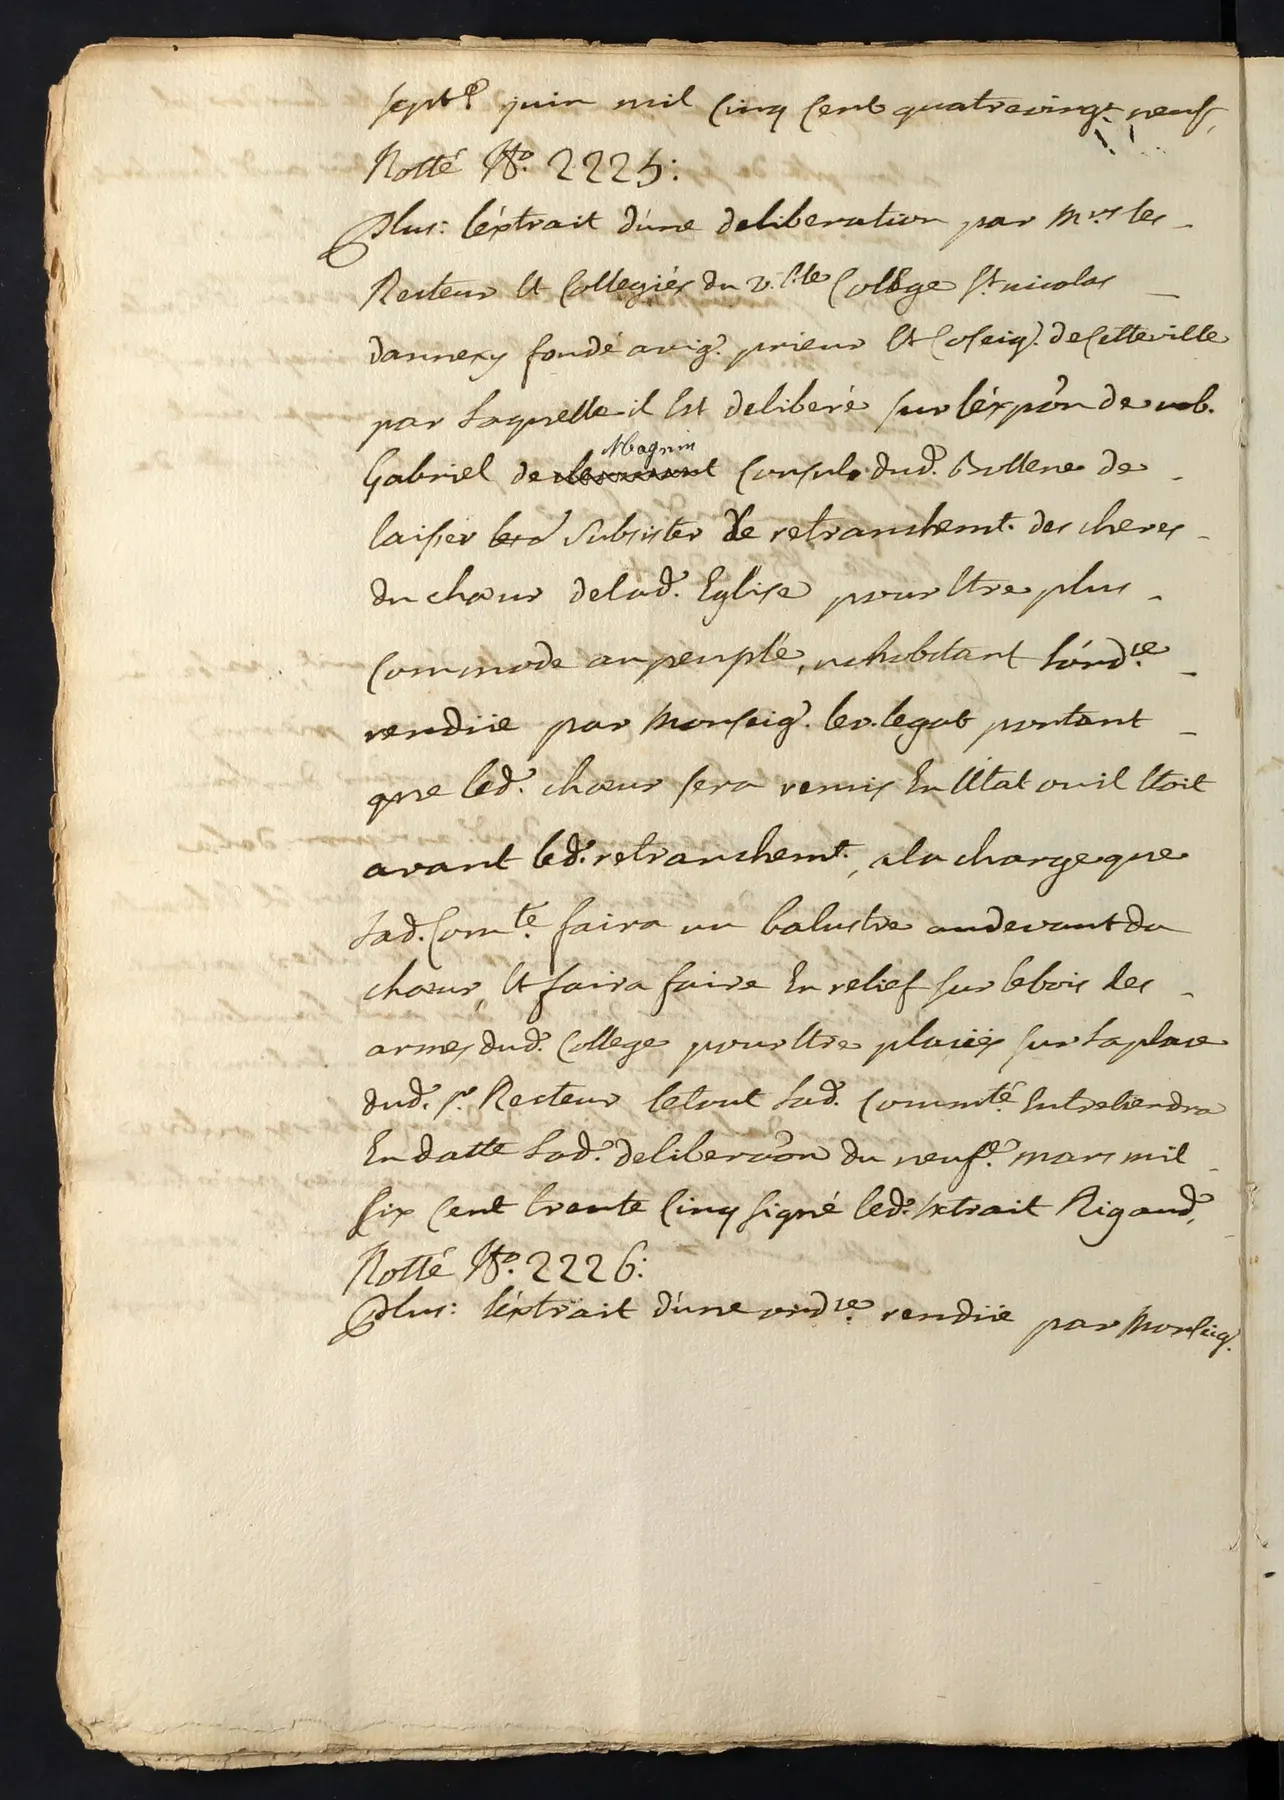 sept.e juin mil cinq cent quatrevingt neuf,
Notté N.o 2225:
Plus: l'éxtrait d'une deliberation par m.rs les
Recteur et Collegiés du v.ble College S.t nicolas
dannecy fondé avig.n prieur et Coseig.r de cetteville
par laquelle il est deliberé sur l'éxpôn de nob.
Gabriel de Magnin Consul dud.t Bollene de
laisser subsister le retranchemt. des cheres
du chœur delad.e Eglise pour etre plus
commode aupeuple, nonobstant l'órd.ce
rendüe par Monseig.r lev.legat portant
que led.t chœur sera remis En l'Etat ouil Etoit
avant led.t retranchemt., ala charge que
lad. Com.té faira un balustre audevant du
chœur, et faira faire En relief sur lebois les
armes dud.t College pour Etre placiés sur la place
dud. s.r Recteur letout lad.e Commté. Entretiendra
En datte lad.e deliberaôn du neuf.e mars mil
six cent trente cinq signé led.t Extrait Rigaud,
Notté N.o 2226:
Plus: l'éxtrait d'une ord.ce rendüe par Monseig.